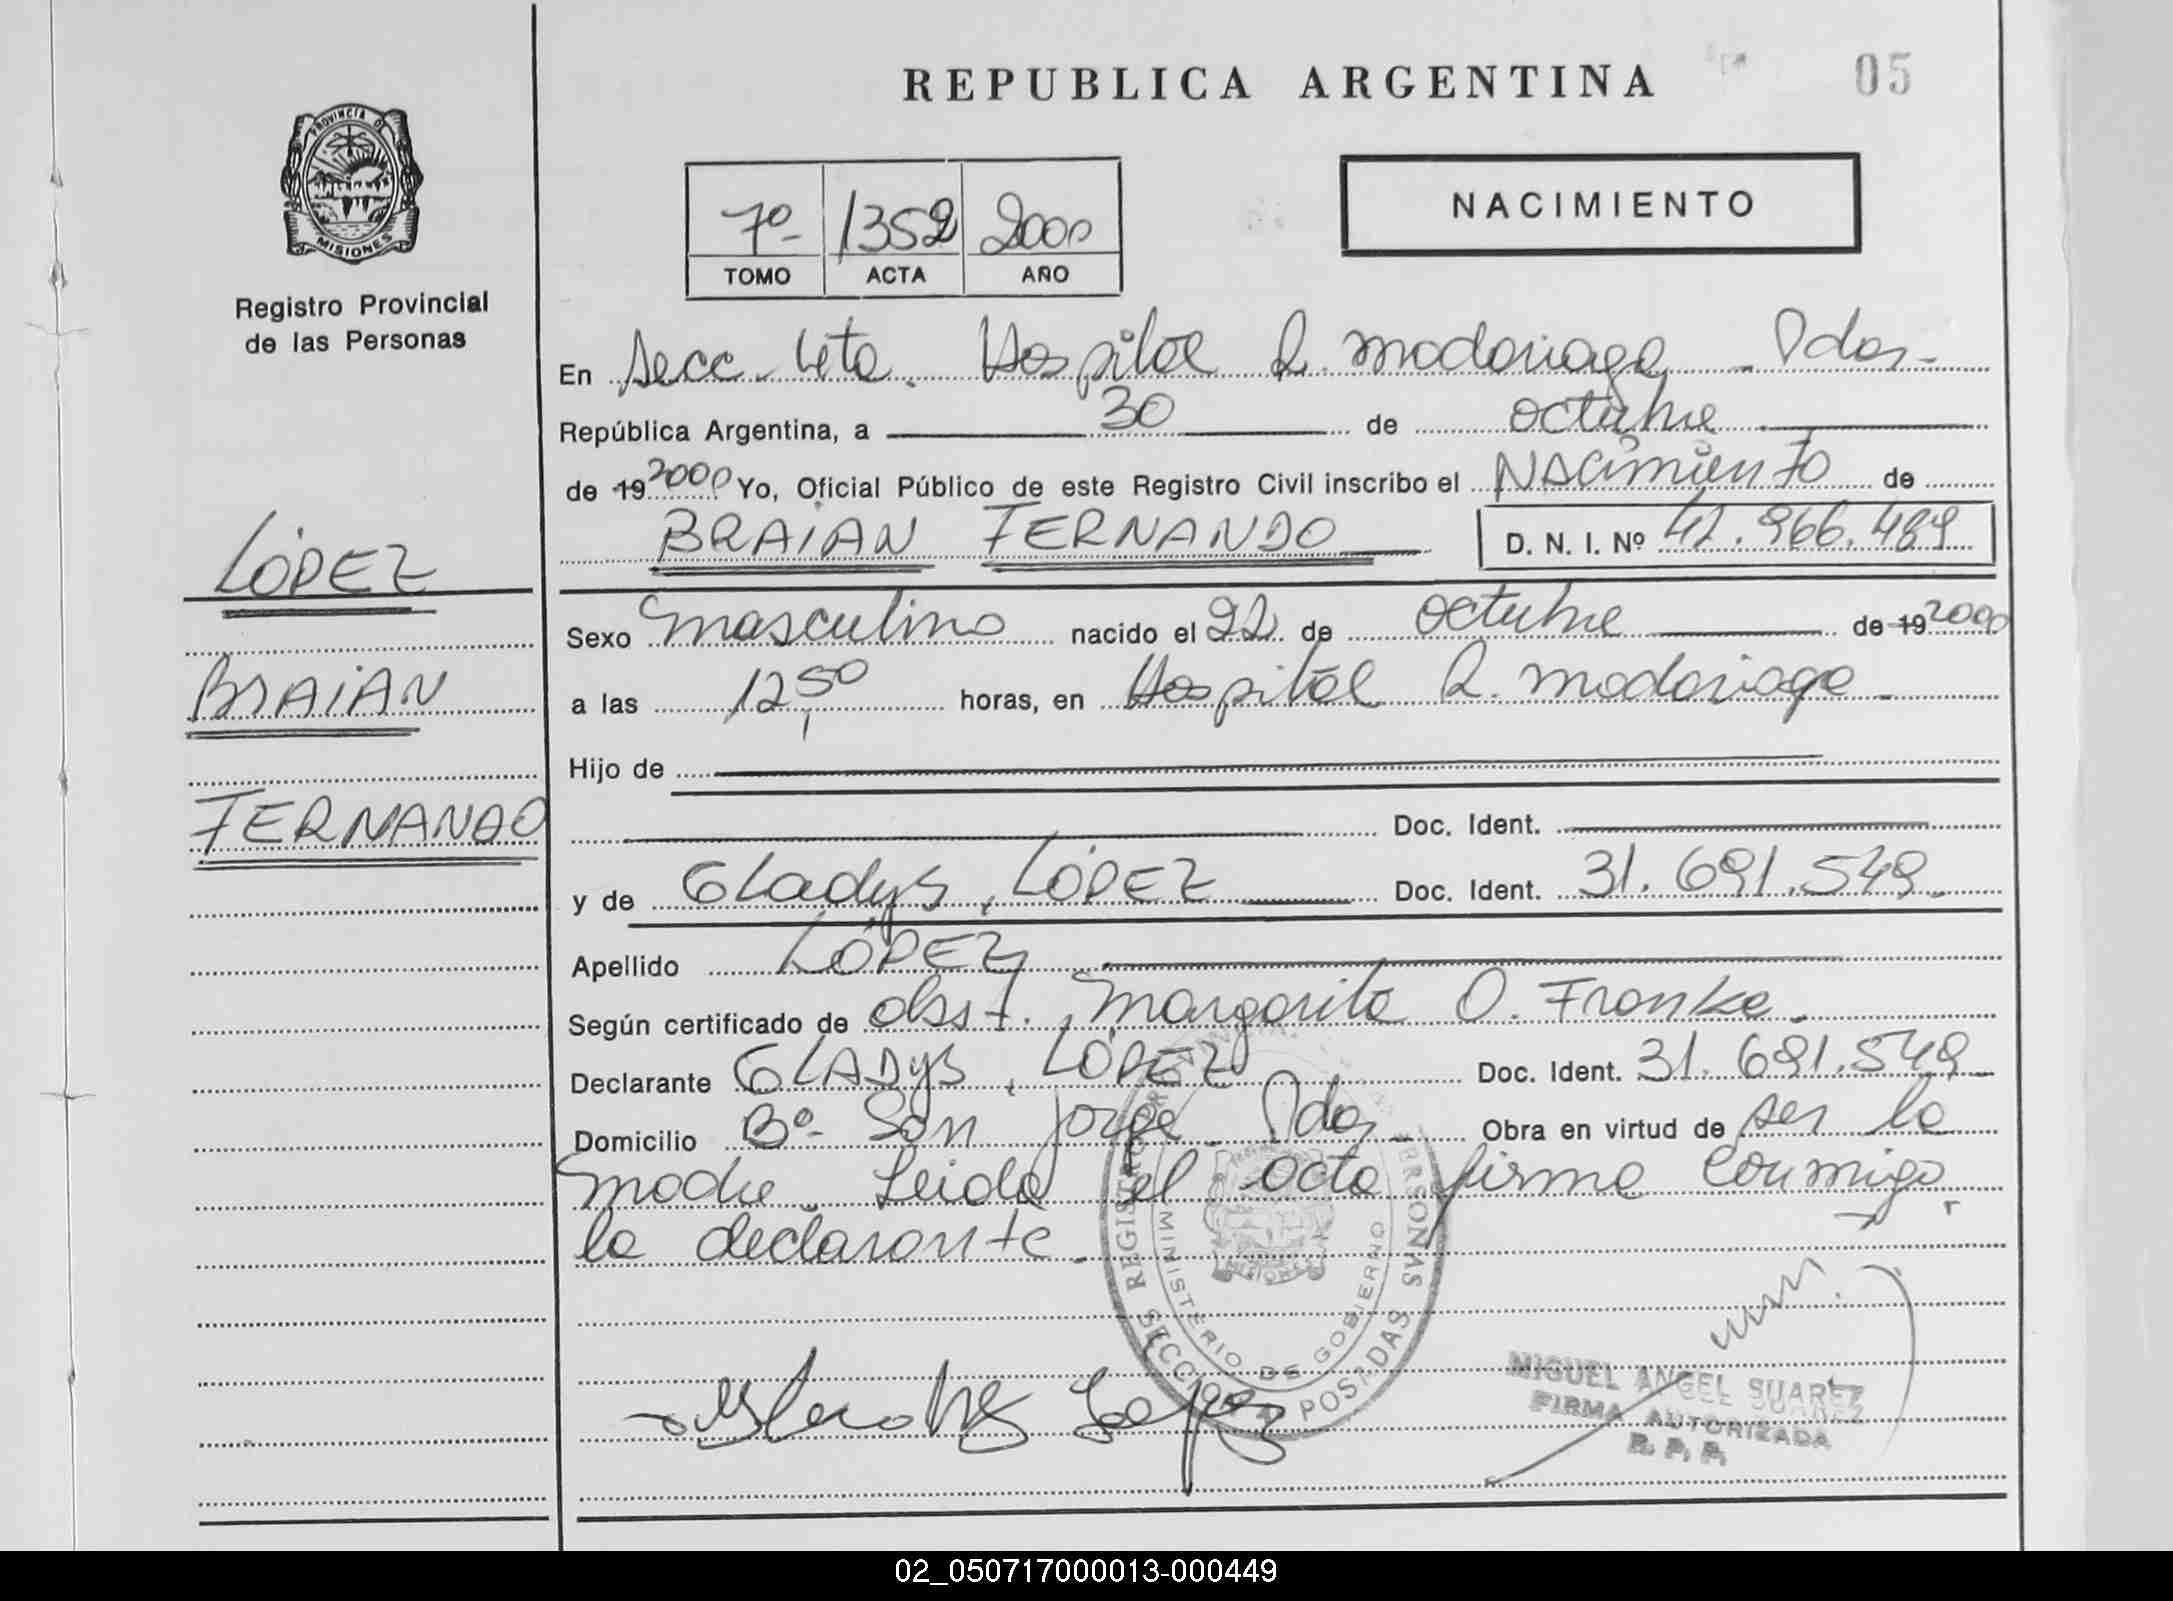 REPUBLICA ARGENTINA
05
PROVINCIA DE
MISIONES
Registro Provincial
de las Personas
7º- 1352 2000
TOMO ACTA AÑO
NACIMIENTO
En Secc. 4ta. Hospital R. Madariaga - Pdas-
República Argentina, a 30 de octubre
de 19 2000 Yo, Oficial Público de este Registro Civil inscribo el NACimiento de
BRAiAN FERNANDO D. N. I. Nº 42.966.489
LÓPEZ
BRAiAN
FERNANDO
Sexo masculino nacido el 22 de octubre de 19 2000
a las 12,50 horas, en Hospital R. Madariaga -
Hijo de
Doc. Ident.
y de GLadys, LÓPEZ Doc. Ident. 31.691.549.
Apellido LÓPEZ
Según certificado de obst. Margarita O. Franke.
Declarante GLADyS, LÓPEZ Doc. Ident. 31.691.549
Domicilio Bº- San Jorge - Pdas - Obra en virtud de ser la
madre. Leida el acta firma conmigo
la declarante.
REGISTRO PERSONAS
MINISTERIO DE GOBIERNO
MISIONES
POSADAS
MIGUEL ANGEL SUAREZ
FIRMA AUTORIZADA
R. P. P.
02_050717000013-000449